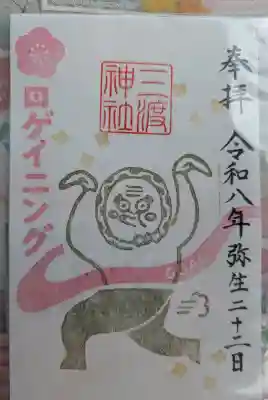 奉拝
令和八年弥生二十二日
三渡
神社
ロゲイニング
GOAL